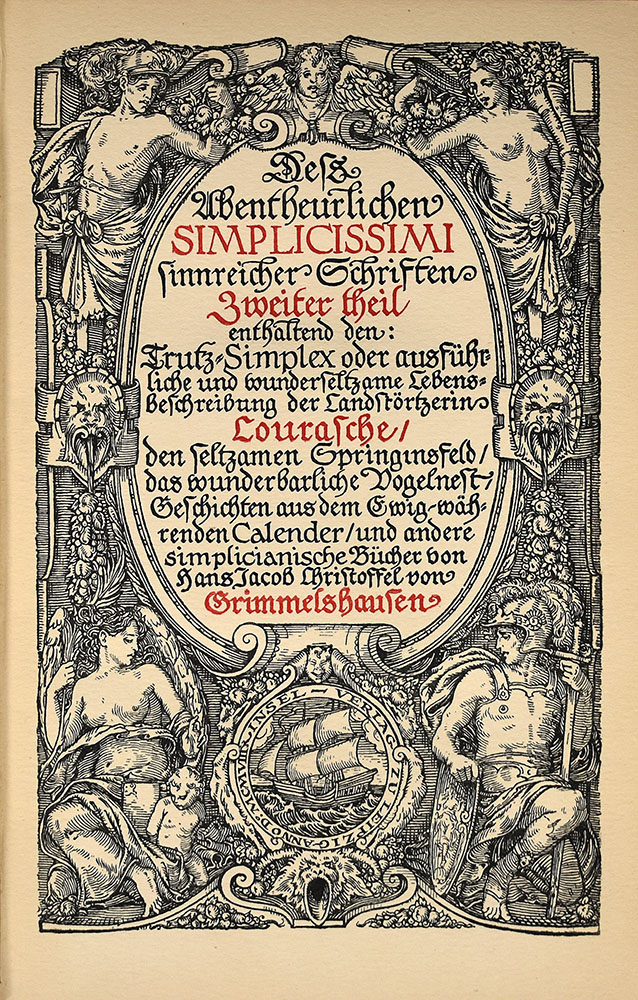 Deſs
Abentheurlichen
SIMPLICISSIMI
ſinnreicher Schriften
Zweiter theil/
enthaltend den:
Trutz-Simplex oder ausführ-
liche und wunderseltzame Lebens-
beschreibung der Landstörtzerin
Courasche/
den seltzamen Springinsfeld/
das wunderbarliche Vogelnest/
Geschichten aus dem Ewig-wäh-
renden Calender/und andere
simplicianische Bücher von
Hans Jacob Christoffel von
Grimmelshausen
INSEL-VERLAG ZU LEIPZIG
ANNO